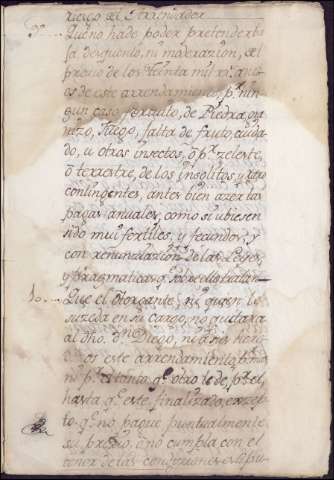 riesgo del Arrendador
9 Que no hade poder pretender ba
ja, descuento, ni moderazion, del
prezio de los treinta mil rs. anu
os de este arrendamiento pr. nin
gun caso fortuito, de Piedra, gra
nizo, fuego, falta de fruto, ciuda
do, u otros insectos, ô pr. zeleste,
ô terrestre, de los insolitos y
contingentes, antes bien azer las
pagas anuales, como si ubiesen
sido mui fertiles, y fecundos, y
con renunciazion de las Leyes,
y Pragmaticas q. sobre ello tratan
10 Que el otorgante, ni quien le
suzeda en su cargo, no quitara
al dho. Dn. Diego, ni a sus here
os este arrendamiento,
ni pr. el tanto, q. otro le de pr. el,
hasta q. este finalizado, exzep
to q. no pague puntualmente
su prezio, ô no cumpla con el
tenor de las condiciones estipu